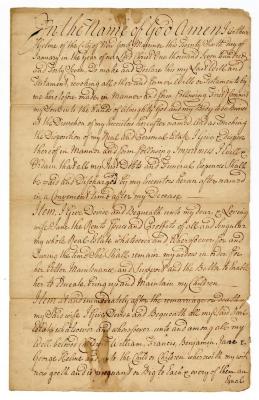 In the Name of God Amen I Arthur
Helme of the City of New York this Seventh day of
January in the year of our Lord Christ One thousand Seven hundred
and forty Seven do make and Declare this my Last Will and
Testament, revoking all other and former Wills or Testaments by
me heretofore made in Manner and form following First I commit
my Soul into the Hands of Almighty God and my Body to be Interred
at the Discretion of my Executors hereafter named And as touching
the Disposition of my Real and Personal Estate I Give & dispose
thereof in Manner and form following Imprimis I Will &
Ordain that all my Just Debts and Funeral Expences Shall
be paid and Discharged by my Executors herein after named
in a Convenient time after my Decease
Item I Give Devise and Bequeath unto my Dear & Loving
wife Jane the Rents Issues and Profitts of all and Singular
my whole Real Estate whatsoever and wheresoever for and
During the time She Shall remain my widow in Order for
her better Maintenance and Support and the Better to Enable
her to Educate bring up and Maintain my Children
Item At and immediately after the remarriage or death of
my Said wife I Give Devise and Bequeath all my Said Real
Estate whatsoever and wheresoever unto and among all my
Well beloved William, Francis, Benjamin, Jane &
George Helme and to the Child or Children wherewith my wife
now goeth and is pregnant or Big to Each & every of them an
Equal